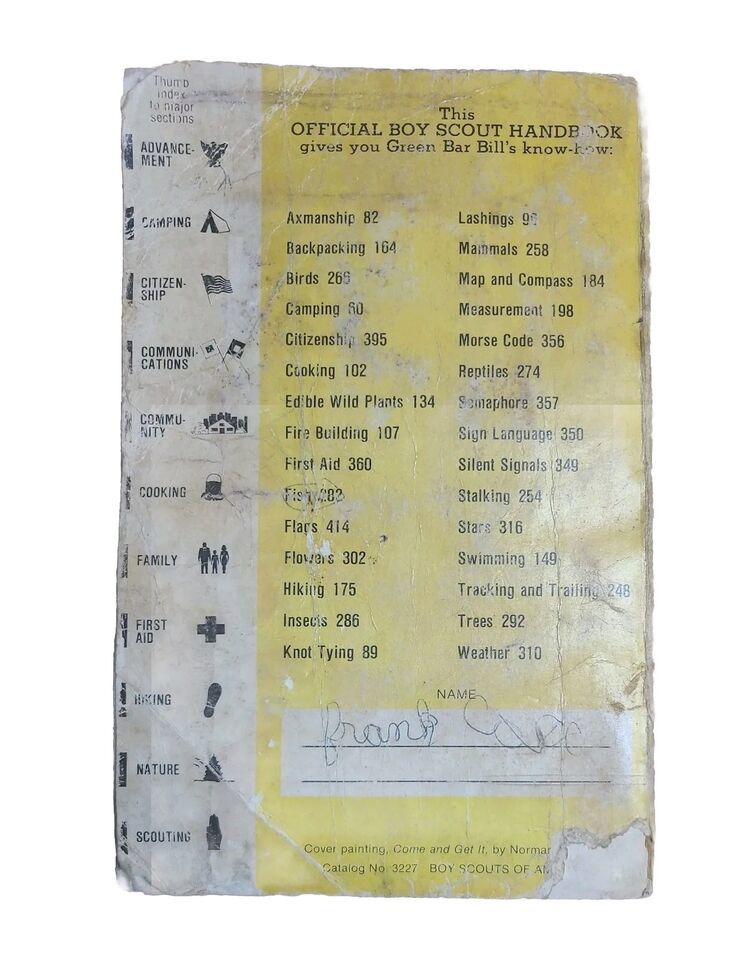 Thumb
index
to major
sections
ADVANCE-
MENT
CAMPING
CITIZEN-
SHIP
COMMUNI-
CATIONS
COMMU-
NITY
COOKING
FAMILY
FIRST
AID
HIKING
NATURE
SCOUTING
This
OFFICIAL BOY SCOUT HANDBOOK
gives you Green Bar Bill's know-how:
Axmanship 82
Backpacking 164
Birds 266
Camping 60
Citizenship 395
Cooking 102
Edible Wild Plants 134
Fire Building 107
First Aid 360
Fish 282
Flags 414
Flowers 302
Hiking 175
Insects 286
Knot Tying 89
Lashings
Mammals 258
Map and Compass 184
Measurement 198
Morse Code 356
Reptiles 274
Semaphore 357
Sign Language 350
Silent Signals 349
Stalking 254
Stars 316
Swimming 149
Tracking and Trailing 248
Trees 292
Weather 310
NAME
frank
Cover painting, Come and Get It, by Norman
Catalog No. 3227 BOY SCOUTS OF AM